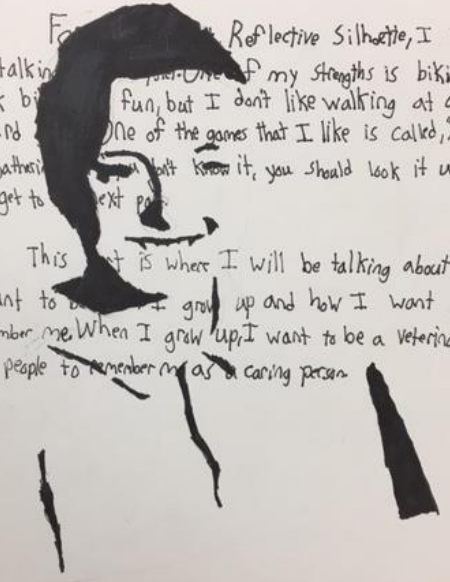 Reflective Silhoette, I
talkin of my strengths is biki
bi fun, but I don't like walking at
One of the games that I like is called,
gatheri know it, you should look it u
get to ext
This is where I will be talking about
nt to I grow up and how I want
mber me. When I grow up, I want to be a veterin
people to remember m as a caring person